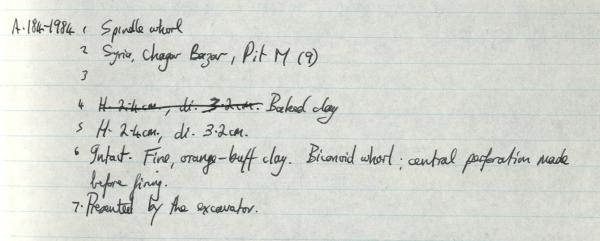 A.184-1984 1 Spindle whorl
2 Syria, Chagar Bazar, Pit M (9)
3
4 H. 2.4cm., di. 3.2cm. Baked clay
5 H. 2.4cm, di. 3.2cm.
6 Intact. Fine, orange-buff clay. Biconoid whorl; central perforation made
before firing.
7. Presented by the excavator.